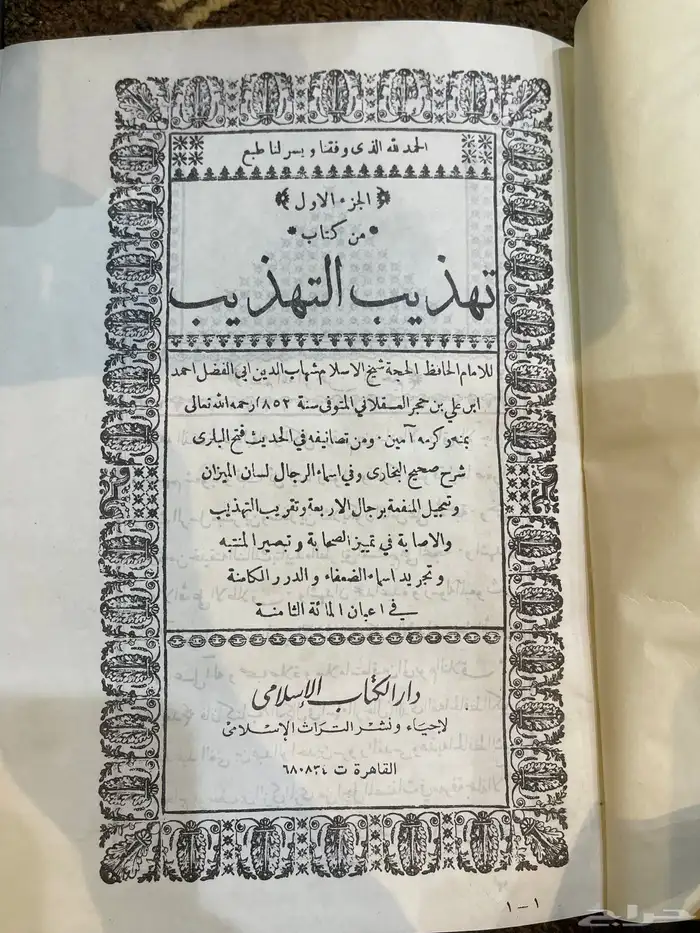 الحمد لله الذى وفقنا ويسر لنا طبع
الجزء الاول
من كتاب
تهذيب التهذيب
للامام الحافظ الحجة شيخ الاسلام شهاب الدين ابي الفضل احمد
ابن علي بن حجر العسقلاني المتوفى سنة ٨٥٢ رحمه الله تعالى
بمنه وكرمه آمين . ومن تصانيفه في الحديث فتح البارى
شرح صحيح البخارى وفي اسماء الرجال لسان الميزان
وتعجيل المنفعة برجال الاربعة وتقريب التهذيب
والاصابة في تمييز الصحابة و تبصير المنتبه
وتجريد اسماء الضعفاء و الدرر الكامنة
في اعيان المائة الثامنة
دار الكتاب الإسلامى
لاحياء ونشر التراث الإسلامى
القاهرة ت ٦٨٠٨٣٤
١-١
حراج